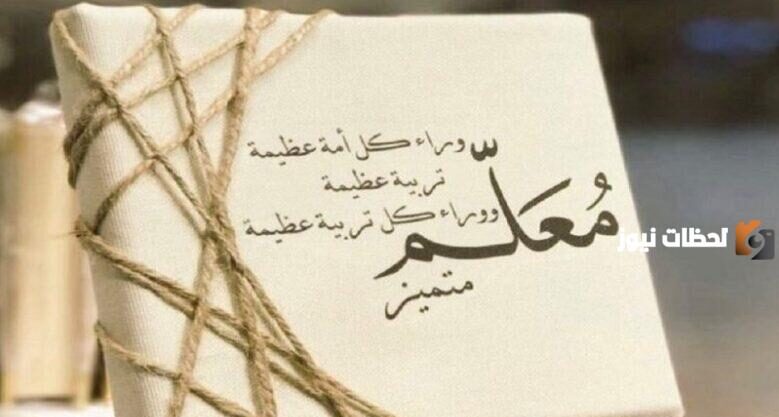 وراء كل أمة عظيمة
تربية عظيمة
ووراء كل تربية عظيمة
مُعَلّم
متميز
لحظات نيوز